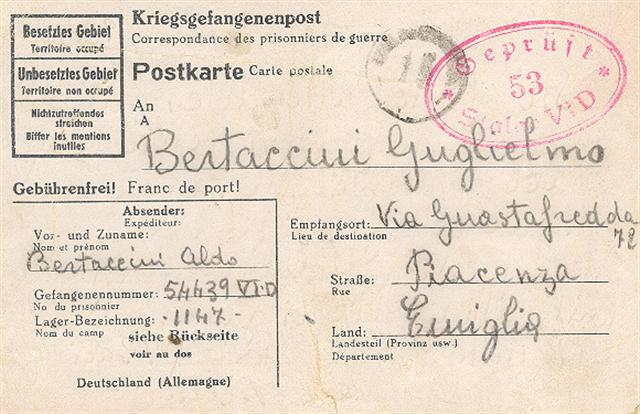 Besetztes Gebiet
Territoire occupé
Unbesetztes Gebiet
Territoire non occupé
Nichtzutreffendes
streichen
Biffer les mentions
inutiles
Kriegsgefangenenpost
Correspondance des prisonniers de guerre
Postkarte Carte postale
Geprüft
53
Stalag VI D
An
A
Bertaccini Guglielmo
Gebührenfrei! Franc de port!
Absender:
Expéditeur:
Vor- und Zuname:
Nom et prénom
Bertaccini Aldo
Gefangenennummer: 54439 VI·D
No du prisonnier
Lager-Bezeichnung: ·1147·
Nom du camp
siehe Rückseite
voir au dos
Deutschland (Allemagne)
Empfangsort: Via Guastafredda
72
Lieu de destination
Straße: Piacenza
Rue
Land: Emiglia
Landesteil (Provinz usw.)
Département